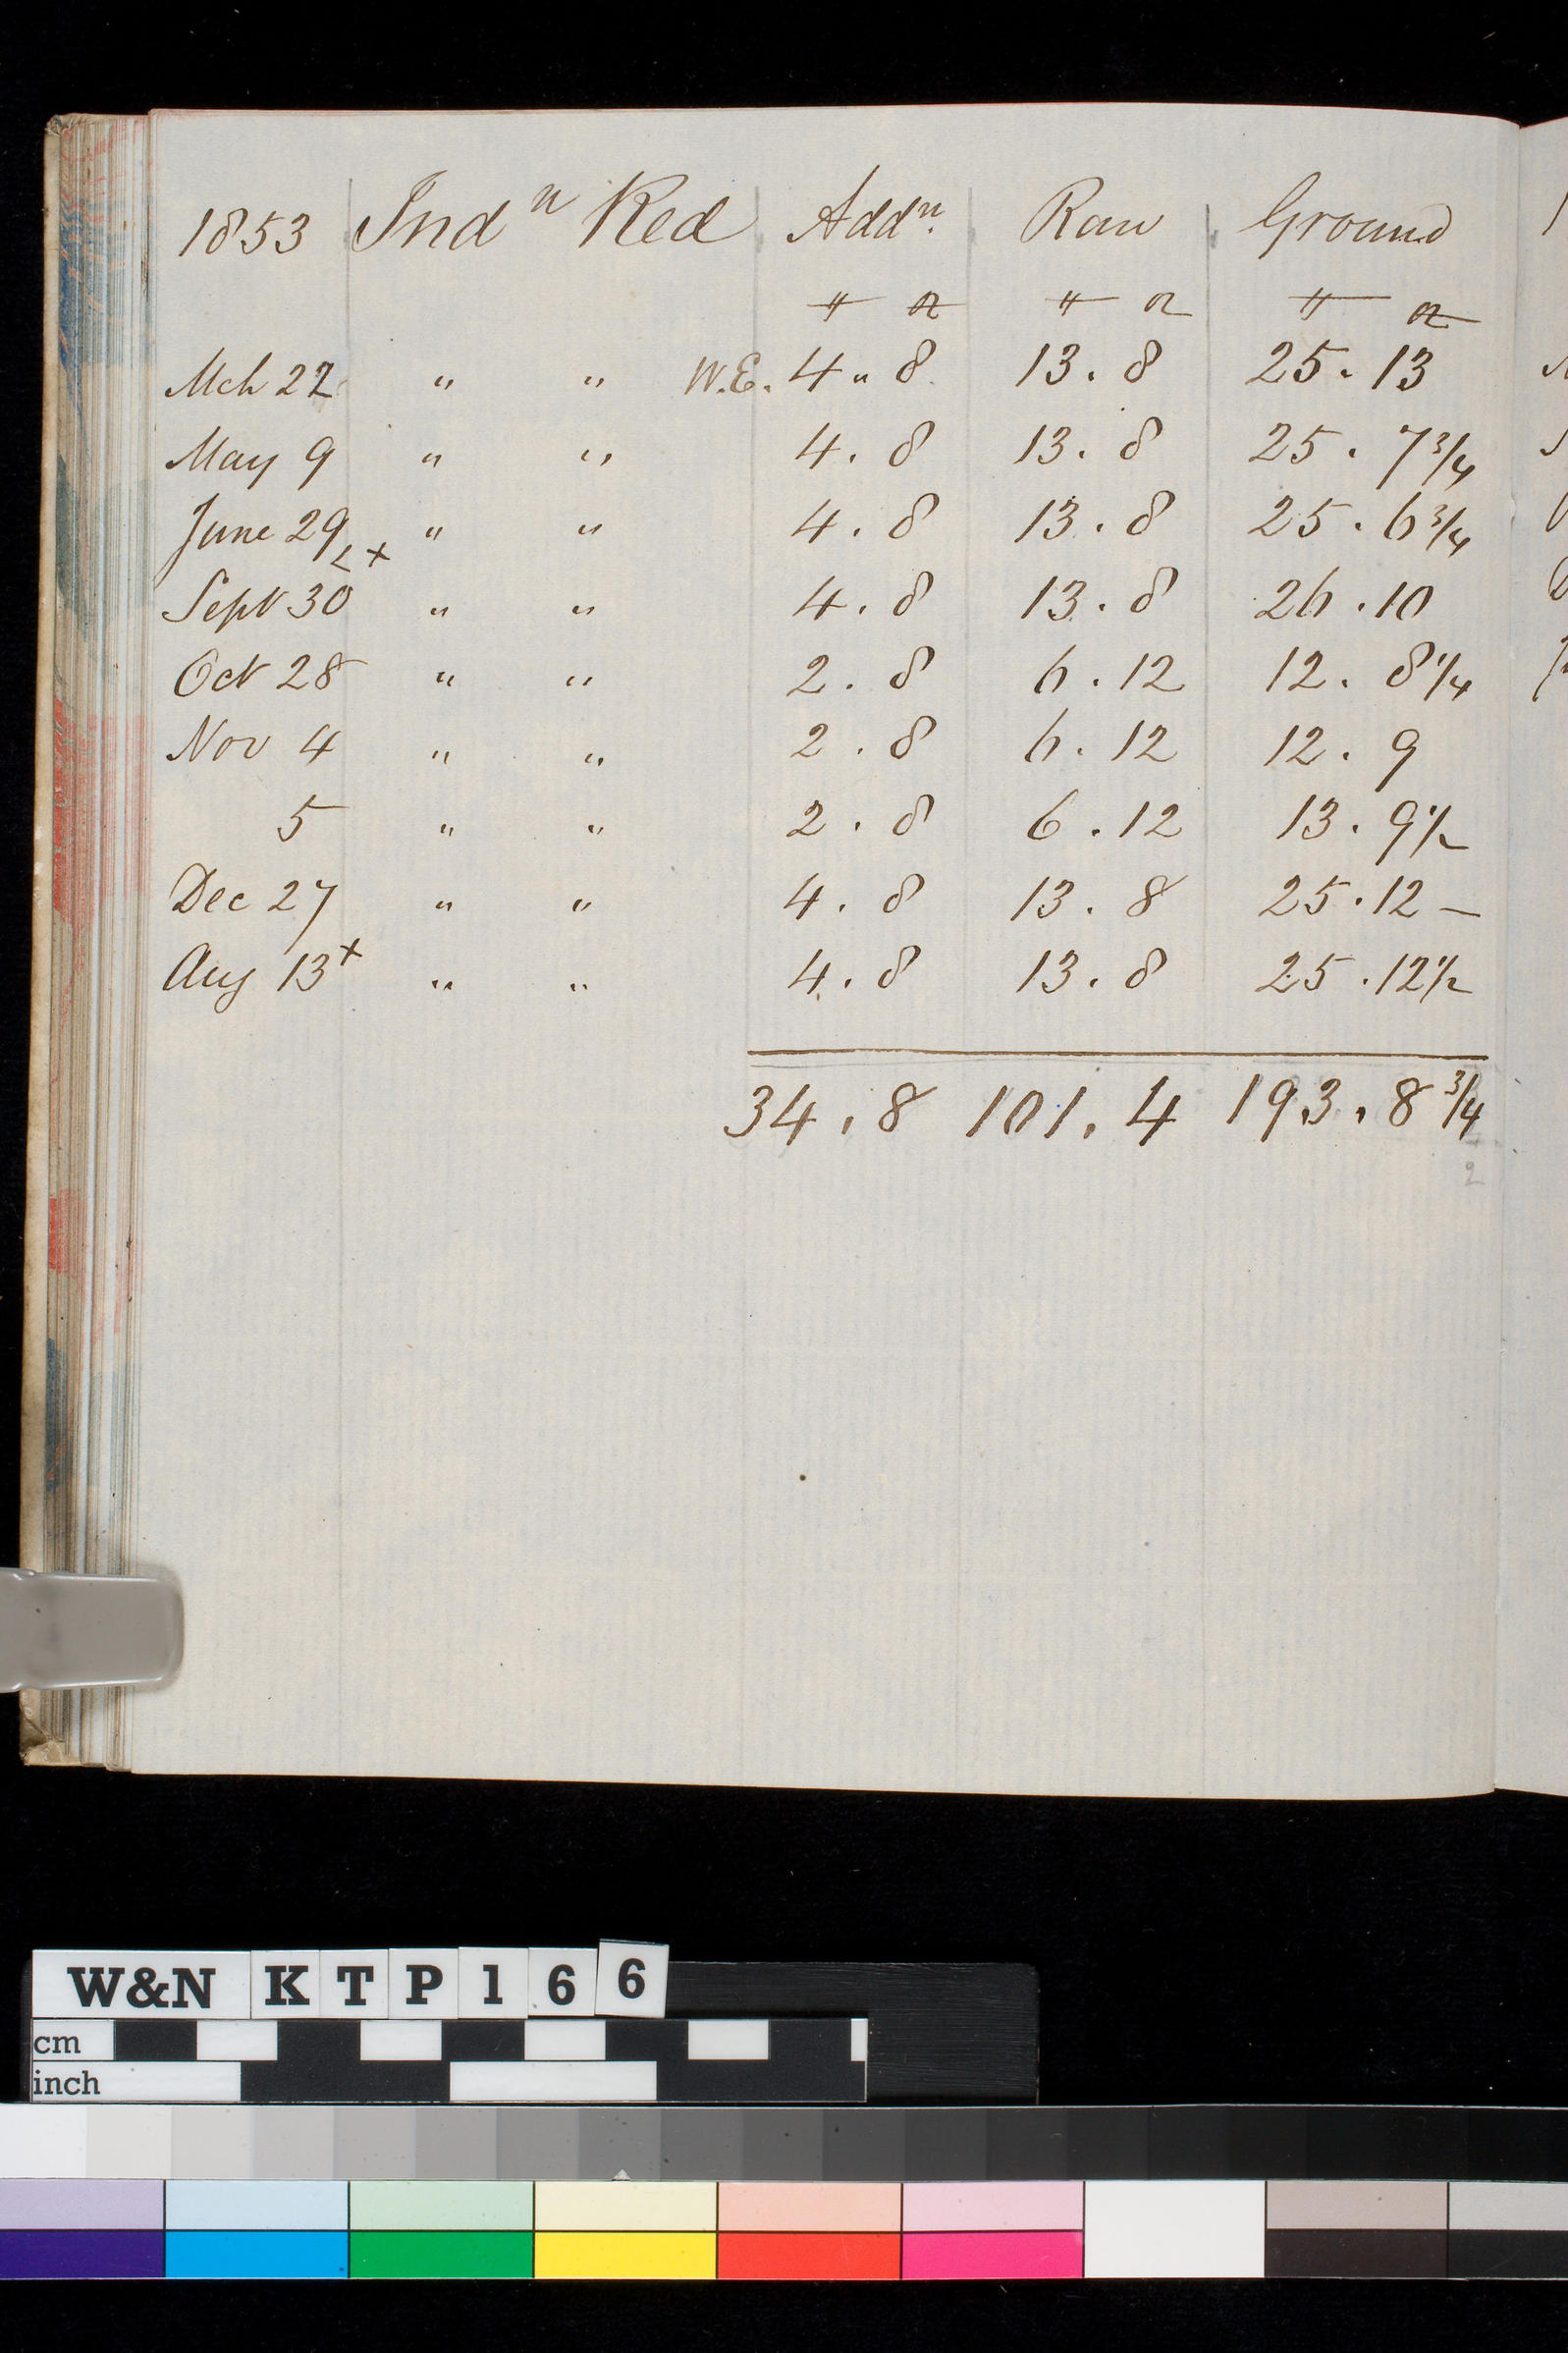 1853 Indn Red Addn. Raw Ground
℔ oz ℔ oz ℔ oz
Mch 22 " " W.E. 4 " 8 13 . 8 25 . 13
May 9 " " 4 . 8 13 . 8 25 . 7 3/4
June 29 " " 4 . 8 13 . 8 25 . 6 3/4
< +
Sept 30 " " 4 . 8 13 . 8 26 . 10
Oct 28 " " 2 . 8 6 . 12 12 . 8 1/4
Nov 4 " " 2 . 8 6 . 12 12 . 9
5 " " 2 . 8 6 . 12 13 . 9 1/2
Dec 27 " " 4 . 8 13 . 8 25 . 12 —
Aug 13 + " " 4 . 8 13 . 8 25 . 12 1/2
34 . 8 101 . 4 193 . 8 3/4
2
W&N KTP166
cm
inch